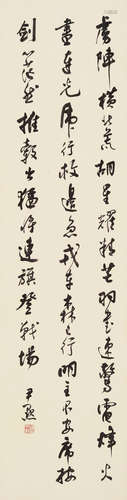 虜陣橫北荒胡星耀精芒羽書速驚電烽火
晝連光虎竹救邊急戎車森已行明主不安席按
劍心飛揚推轂出猛將連旗登戰場
尹默